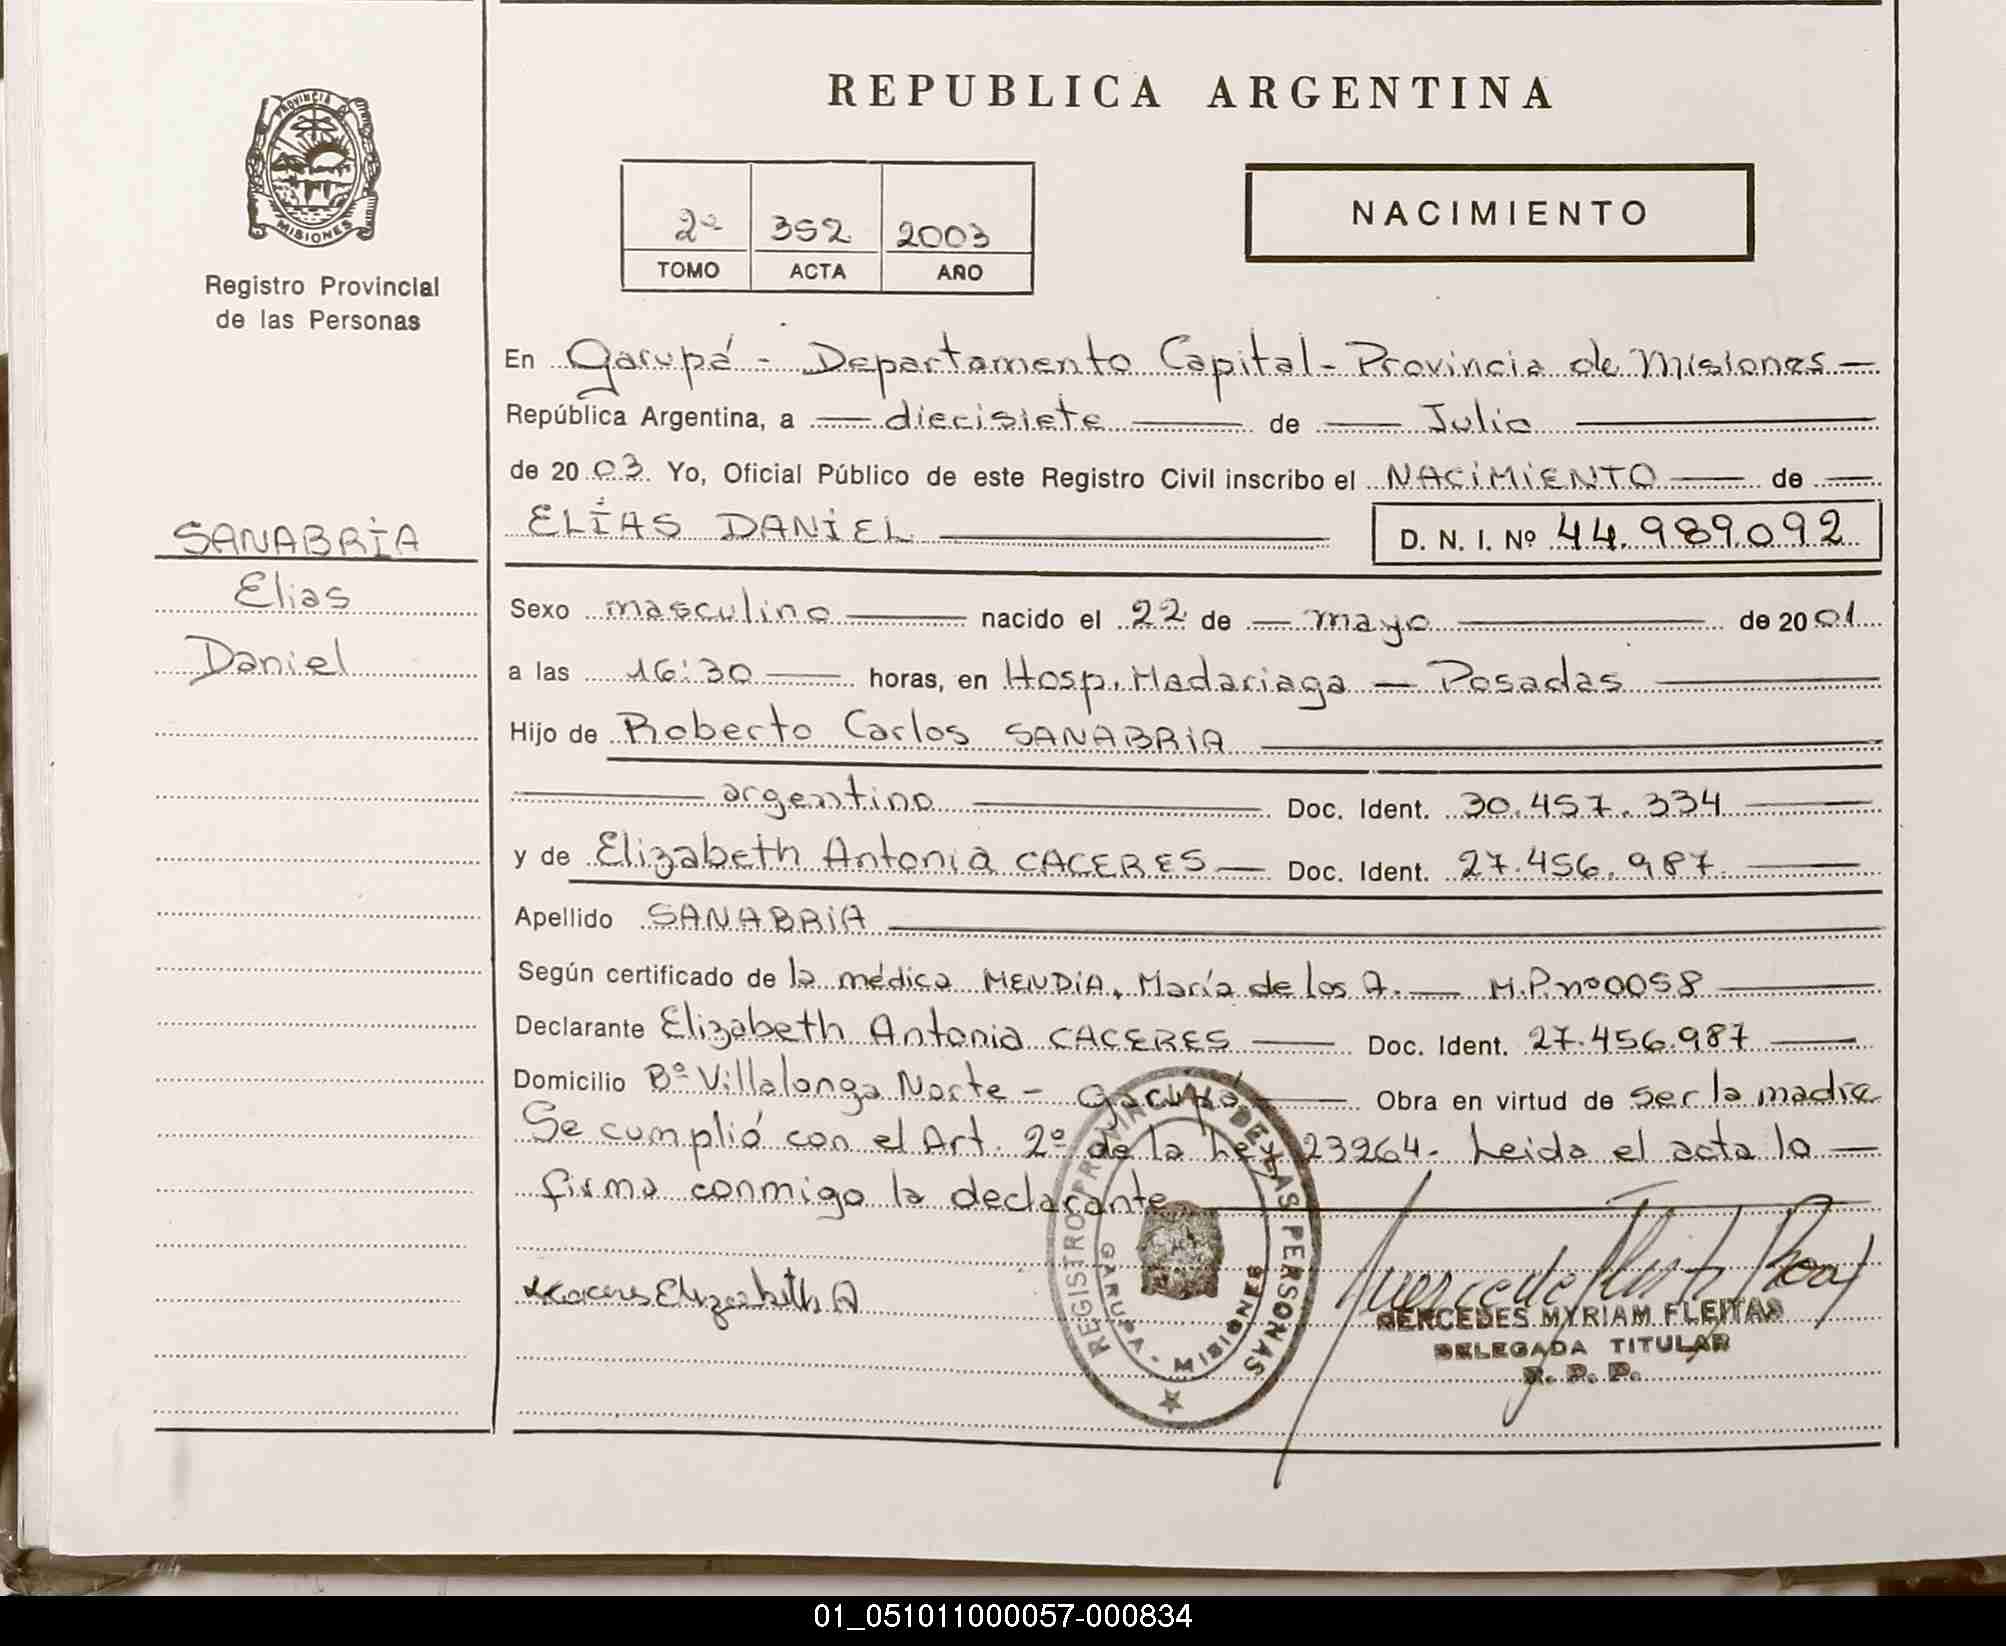 PROVINCIA DE
MISIONES
Registro Provincial
de las Personas
SANABRIA
Elias
Daniel
REPUBLICA ARGENTINA
2º 352 2003
TOMO ACTA AÑO
NACIMIENTO
En Garupá - Departamento Capital - Provincia de Misiones —
República Argentina, a — diecisiete — de — Julio —
de 2003. Yo, Oficial Público de este Registro Civil inscribo el NACIMIENTO — de —
ELÍAS DANIEL — D. N. I. Nº 44.989.092
Sexo masculino — nacido el 22 de — mayo — de 2001
a las 16:30 — horas, en Hosp. Madariaga — Posadas —
Hijo de Roberto Carlos SANABRIA —
— argentino — Doc. Ident. 30.457.334 —
y de Elizabeth Antonia CACERES — Doc. Ident. 27.456.987 —
Apellido SANABRIA —
Según certificado de la médica MENDIA, María de los A. — M.P. nº 0058 —
Declarante Elizabeth Antonia CACERES — Doc. Ident. 27.456.987 —
Domicilio Bº Villalonga Norte - Garupá — Obra en virtud de ser la madre
Se cumplió con el Art. 2º de la Ley 23264. Leida el acta la —
firma conmigo la declarante —
Caceres Elizabeth A
REGISTRO PROVINCIAL DE LAS PERSONAS
GARUPA - MISIONES
MERCEDES MYRIAM FLEITAS
DELEGADA TITULAR
R. P. P.
01_051011000057-000834